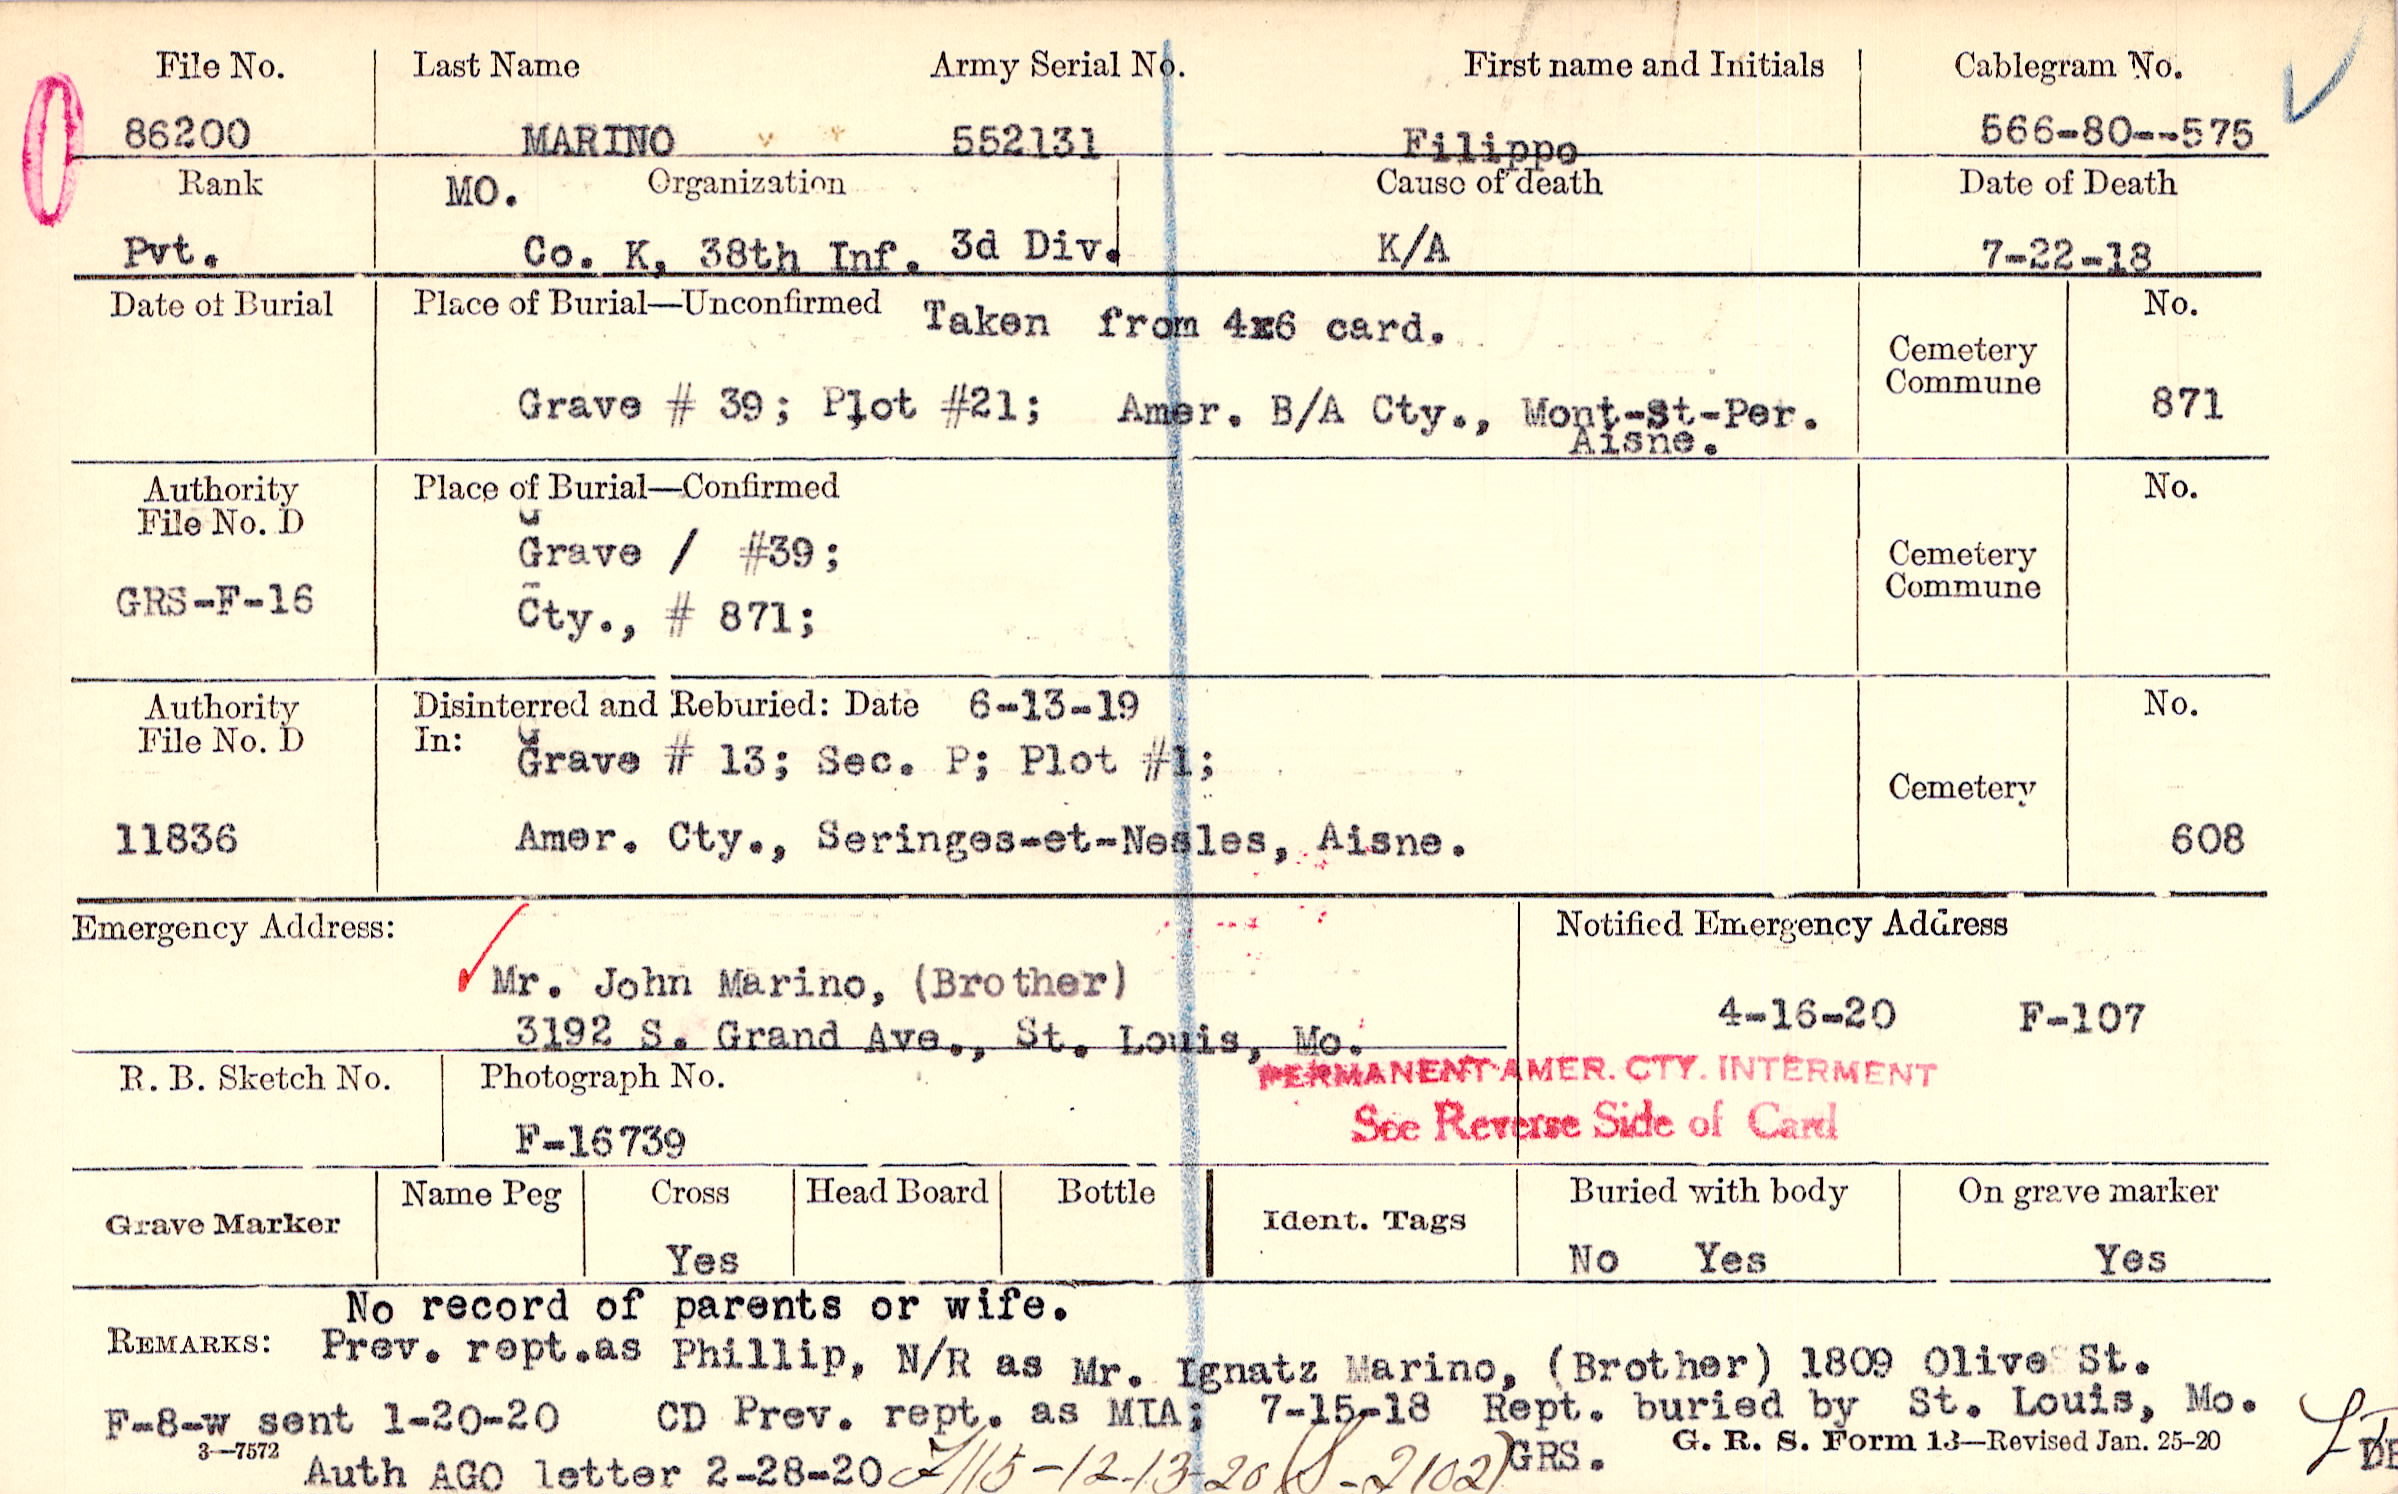 File No. Last Name Army Serial No. First name and Initials Cablegram No.
86200 MARINO 552131 Filippo 566-80--575
Rank MO. Organization Cause of death Date of Death
Pvt. Co. K, 38th Inf. 3d Div. K/A 7-22-18
Date of Burial Place of Burial—Unconfirmed Taken from 4x6 card. No.
Cemetery
Commune
Grave # 39; Plot #21; Amer. B/A Cty., Mont-St-Per. 871
Aisne.
Authority Place of Burial—Confirmed No.
File No. D
Grave / #39; Cemetery
Commune
GRS-F-16 Cty., # 871;
Authority Disinterred and Reburied: Date 6-13-19 No.
File No. D In:
Grave # 13; Sec. P; Plot #1;
Cemetery
11836 Amer. Cty., Seringes-et-Nesles, Aisne. 608
Emergency Address: Notified Emergency Address
Mr. John Marino, (Brother)
4-16-20 F-107
3192 S. Grand Ave., St. Louis, Mo.
R. B. Sketch No. Photograph No. PERMANENT AMER. CTY. INTERMENT
See Reverse Side of Card
F-16739
Grave Marker Name Peg Cross Head Board Bottle Ident. Tags Buried with body On grave marker
Yes No Yes Yes
No record of parents or wife.
REMARKS: Prev. rept.as Phillip, N/R as Mr. Ignatz Marino, (Brother) 1809 Olive St.
F-8-w sent 1-20-20 CD Prev. rept. as MIA; 7-15-18 Rept. buried by St. Louis, Mo.
3—7572 GRS. G. R. S. Form 13—Revised Jan. 25-20
Auth AGO letter 2-28-20 -12-13-20 (S-2102)